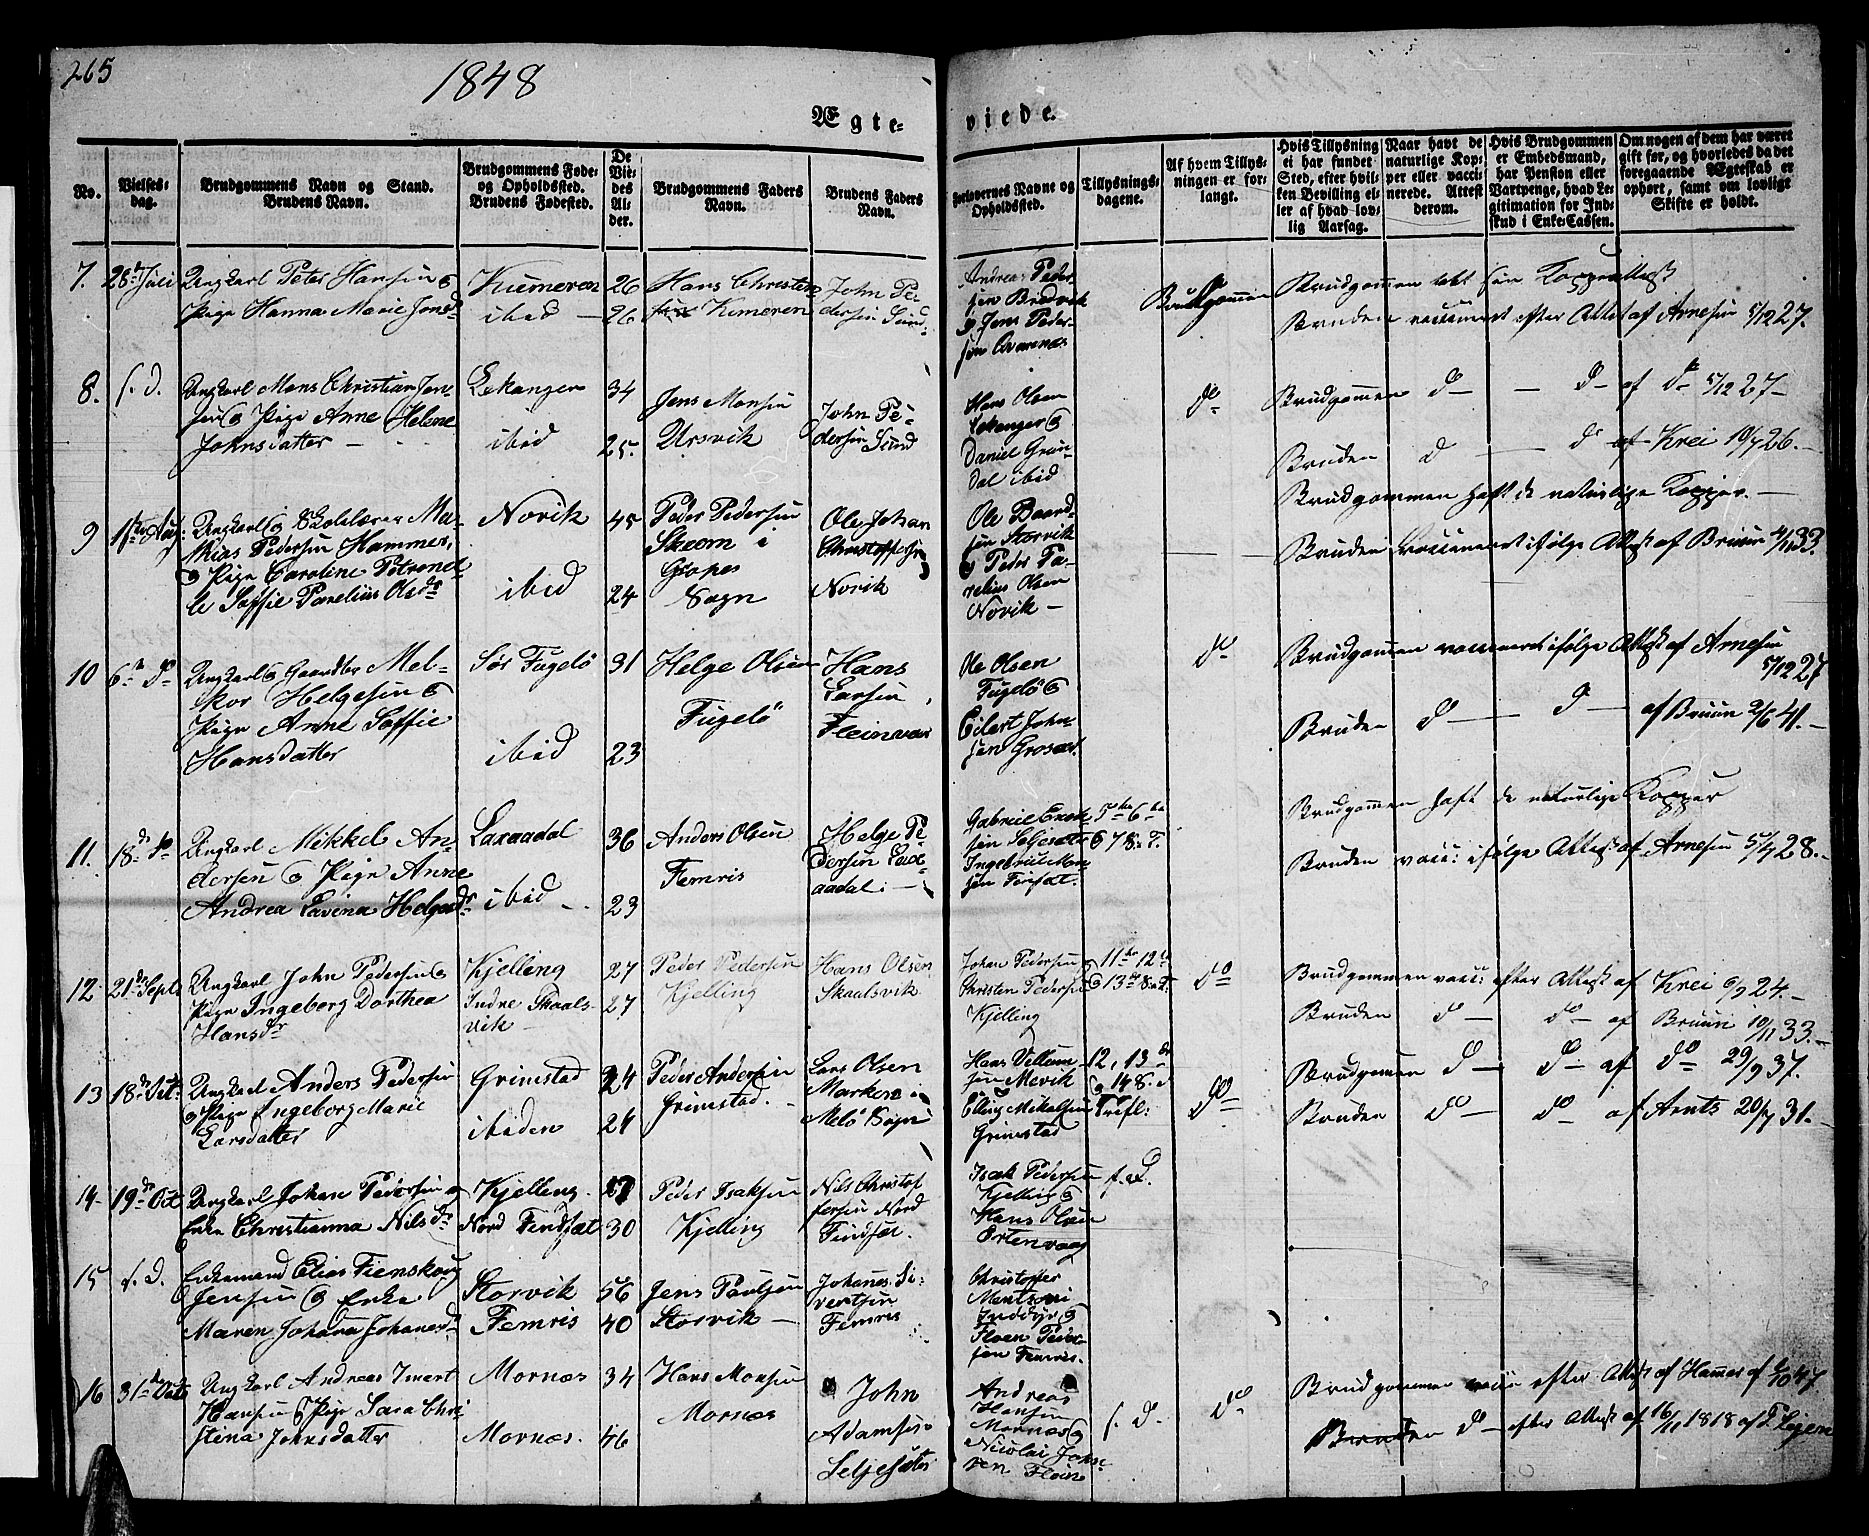 265
1848
Ægte-
viede.
No.
Vielses-
dag.
Brudgommens Navn og Stand.
Brudens Navn.
Brudgommens Føde-
og Opholdssted.
Brudens Fødested.
De
Vie-
des
Al-
der.
Brudgommens Faders
Navn.
Brudens Faders
Navn.
Forlovernes Navne og
Opholdssted.
Tillysnings-
dagene.
Af hvem Tillys-
ningen er for-
langt.
Hvis Tillysning
ei har fundet
Sted, efter hvil-
ken Bevilling el-
ler af hvad lov-
lig Aarsag.
Naar havt de
naturlige Kop-
per eller vacci-
nerede. Attest
derom.
Hvis Brudgommen
er Embedsmand,
har Pension eller
Vartpenge, hvad Le-
gitimation for Ind-
skud i Enke-Cassen.
Om nogen af dem har været
gift før, og hvorledes da det
foregaaende Ægteskab er
ophørt, samt om lovligt
Skifte er holdt.
7. 28de Juli
Ungkarl Peter Hansen &
Pige Hanna Marie Jonsd
ibid
26
26
Hans Christen
sen
John Pe-
dersen Sund
Andreas Peder
sen Bredvik
& Jens Peder-
sen
Brudgommen
Brudgommen
Bruden vaccineret efter Attest af Arnesen 5/12 27.
8. s. d.
Ungkarl Mons Christian Jen-
sen & Pige Anne Helene
Johnsdatter
Lekanger
ibid
34
25
Jens Monsen
Ursvik
John Pe-
dersen Sund
Hans Olsen
Lekanger &
Daniel Grøn-
dal ibid
do
Brudgommen do — do af do 5/12 27
Bruden do — do af Krei 10/7 26.
9 1ste Aug
Ungkarl & Skolelærer Ma-
thias Pedersen Hammer,
& Pige Caroline Petronel-
le Soffie Parelius Olsdr
Norvik
ibid
45
24
Peder Pedersen
Skeom i
Sogn
Ole Johan
Christoffersen
Norvik
Ole Baard-
sen Storvik
& Peder Pa-
relius Olsen
Novik
Brudgommen haft de naturlige Kopper.
Bruden vaccineret ifølge Attest af Bruun 4/11 33.
10 6te do
Ungkarl & Gaardbr Mel-
kor Helgesen &
Pige Anne Soffie
Hansdatter
Sør Fugelö
ibid
31
23
Helge Olsen
Fugelö
Hans
Larsen
Fleinvær
Ole Olsen
Fugelö &
Eilert John-
sen
do
Brudgommen vaccineret ifølge Attest af Arnesen
5/12 27
Bruden do — do — af Bruun 2/6 41.
11. 18de do
Ungkarl Mikkel An-
dersen & Pige Anne
Andrea Lavina Helgesdr
Laxaadal
ibid
36
23
Anders Olsen
Femris
Helge Pe-
dersen Lax-
aadal
Gabriel Enok
sen
Ingebrigt Mon
sen
5te 6te
& 7 S. e. T.
Brudgommen haft de naturlige Kopper
Bruden vacc: ifølge Attest af Arnesen 5/7 28.
12 21de Sept
Ungkarl John Pedersen &
Pige Ingeborg Dorthea
Hansdr
Kjelling
Indre Skaals-
vik
27
27
Peder Pedersen
Kjelling
Hans Olsen
Skaalsvik
Johan Pedersen
Christen Pedersen
Kjelling
11te 12te
& 13de S. e. T.
do
Brudgommen vacc: efter Attest af Krei 6/9 24.
Bruden do — do — af Bruun 10/11 33.
13 18de Oct:
Ungkarl Anders Pedersen
& Pige Ingeborg Marie
Larsdatter
Grimstad
ibiden
24
24
Peder Andersen
Grimstad.
Lars Olsen
Marken i
Melö Sogn
Hans Villum
sen Mevik
Elling Mikalsen
Grimstad
12, 13de
& 14 S. e
Trifl:
do
Brudgommen do — do — af do 29/9 37.
Bruden do — do — af Arnts 20/7 31.
14 19de Oct
Ungkarl Johan Pedersen &
Enke Christianna Nilsdr
Kjelling
Nord Findsæt
27
30
Peder Isaksen
Kjelling
Nils Christof
fersen Nord
Findsæt.
Isak Pedersen
Kjelling &
Hans Olsen
Ertenvaag
s. d.
15 s. d.
Enkemand Elias Fienskoug
Jensen & Enke
Maren Johana Johanesd
Storvik
Femris
56
40
Jens Paulsen
Storvik
Johanes Si-
vertsen
Femris
Christoffer
Mentsoni
Inddyr &
Floen Peder
sen Femris.
16 31de Oct
Ungkarl Andreas Imert
Hansen & Pige Sara Chri
stina Johnsdatter
Mornæs
Mornæs.
34
46
Hans Monsen
Mornæs
John
Adamsen
Seljesæter
Andreas
Hansen
Mornæs &
Nicolai John-
sen
s. d.
do
Brudgommen vacc: efter Attest af Hammer af
Bruden do — efter Attest af 16/11 1818 af